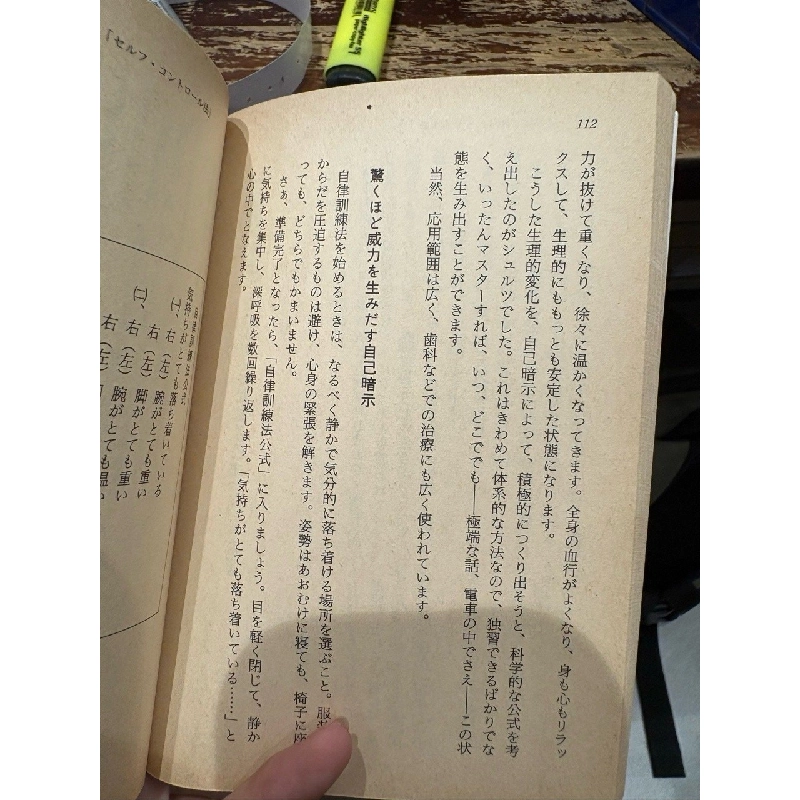 112
力が抜けて重くなり、徐々に温かくなってきます。全身の血行がよくなり、身も心もリラッ
クスして、生理的にももっとも安定した状態になります。
こうした生理的変化を、自己暗示によって、積極的につくり出そうと、科学的な公式を考
え出したのがシュルツでした。これはきわめて体系的な方法なので、独習できるばかりでな
く、いったんマスターすれば、いつ、どこででも——極端な話、電車の中でさえ——この状
態を生み出すことができます。
当然、応用範囲は広く、歯科などでの治療にも広く使われています。
驚くほど威力を生みだす自己暗示
自律訓練法を始めるときは、なるべく静かで気分的に落ち着ける場所を選ぶこと。服
からだを圧迫するものは避け、心身の緊張を解きます。姿勢はあおむけに寝ても、椅子に座
っても、どちらでもかまいません。
さあ、準備完了となったら、「自律訓練法公式」に入りましょう。目を軽く閉じて、静か
に気持ちを集中し、深呼吸を数回繰り返します。「気持ちがとても落ち着いている……」と
心の中でとなえます。
『セルフ・コントロール法』
自律訓練法公式
気持ちがとても落ち着いている
㈠、右（左）腕がとても重い
㈡、右（左）脚がとても重い
右（左）
がとても温い